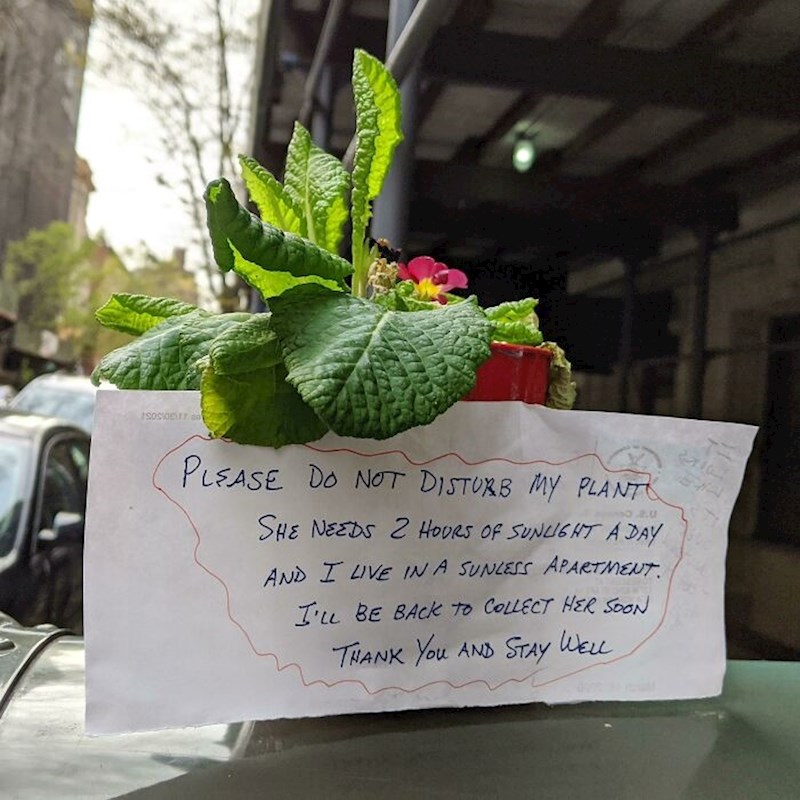 PLEASE DO NOT DISTURB MY PLANT
SHE NEEDS 2 HOURS OF SUNLIGHT A DAY
AND I LIVE IN A SUNLESS APARTMENT.
I'LL BE BACK TO COLLECT HER SOON
THANK YOU AND STAY WELL